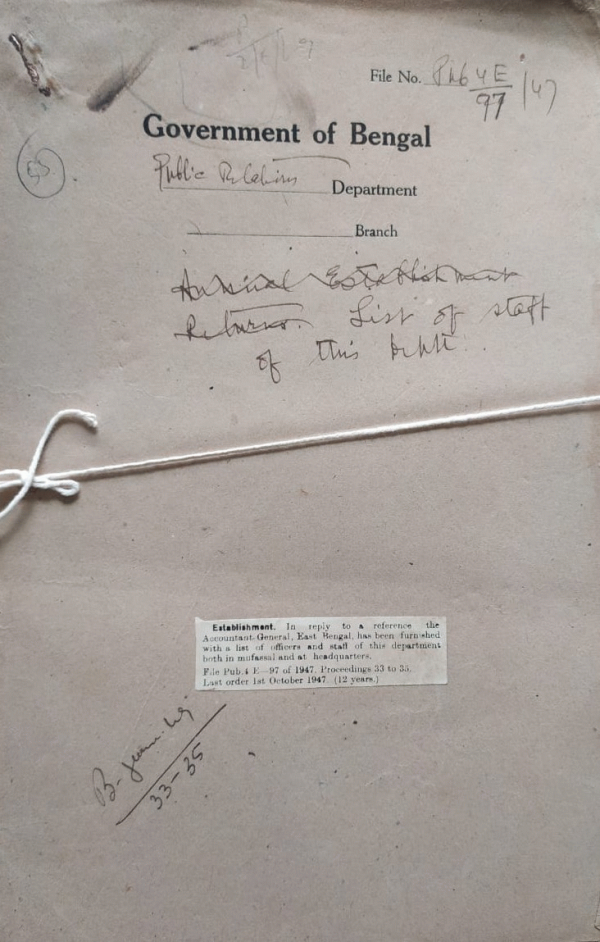 File No. Pub 4 E/97/47
Government of Bengal
Public Relations Department
Branch
Annual Establishment
Returns. List of staff
of this deptt.
Establishment. In reply to a reference the
Accountant-General, East Bengal, has been furnished
with a list of officers and staff of this department
both in mufassal and at headquarters.
File Pub.4 E—97 of 1947. Proceedings 33 to 35.
Last order 1st October 1947. (12 years.)
33-35